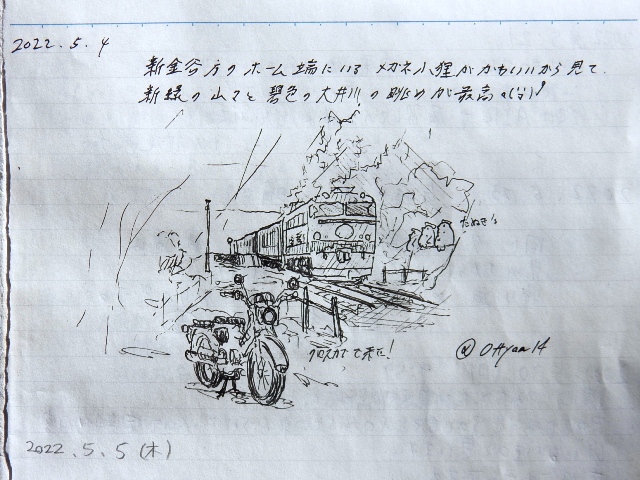 2022.5.4
新金谷方のホーム端にいる メガネ小狸がかわいいから見て.
新緑の山々と碧色の大井川の眺めが最高
たぬき's
クロスカブで来た!
2022.5.5(木)